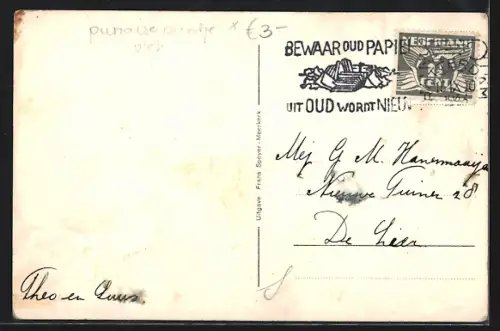 punaise gaatje * €3-
BEWAAR OUD PAPIE
UIT OUD WORDT NIEUW
NEDERLAND
2½
CENT
Mej G M. Hanemaaijer
Nieuwe Tuinen 28
De Lier
Uitgave Frans Speyer - Meerkerk
Theo en Guus.